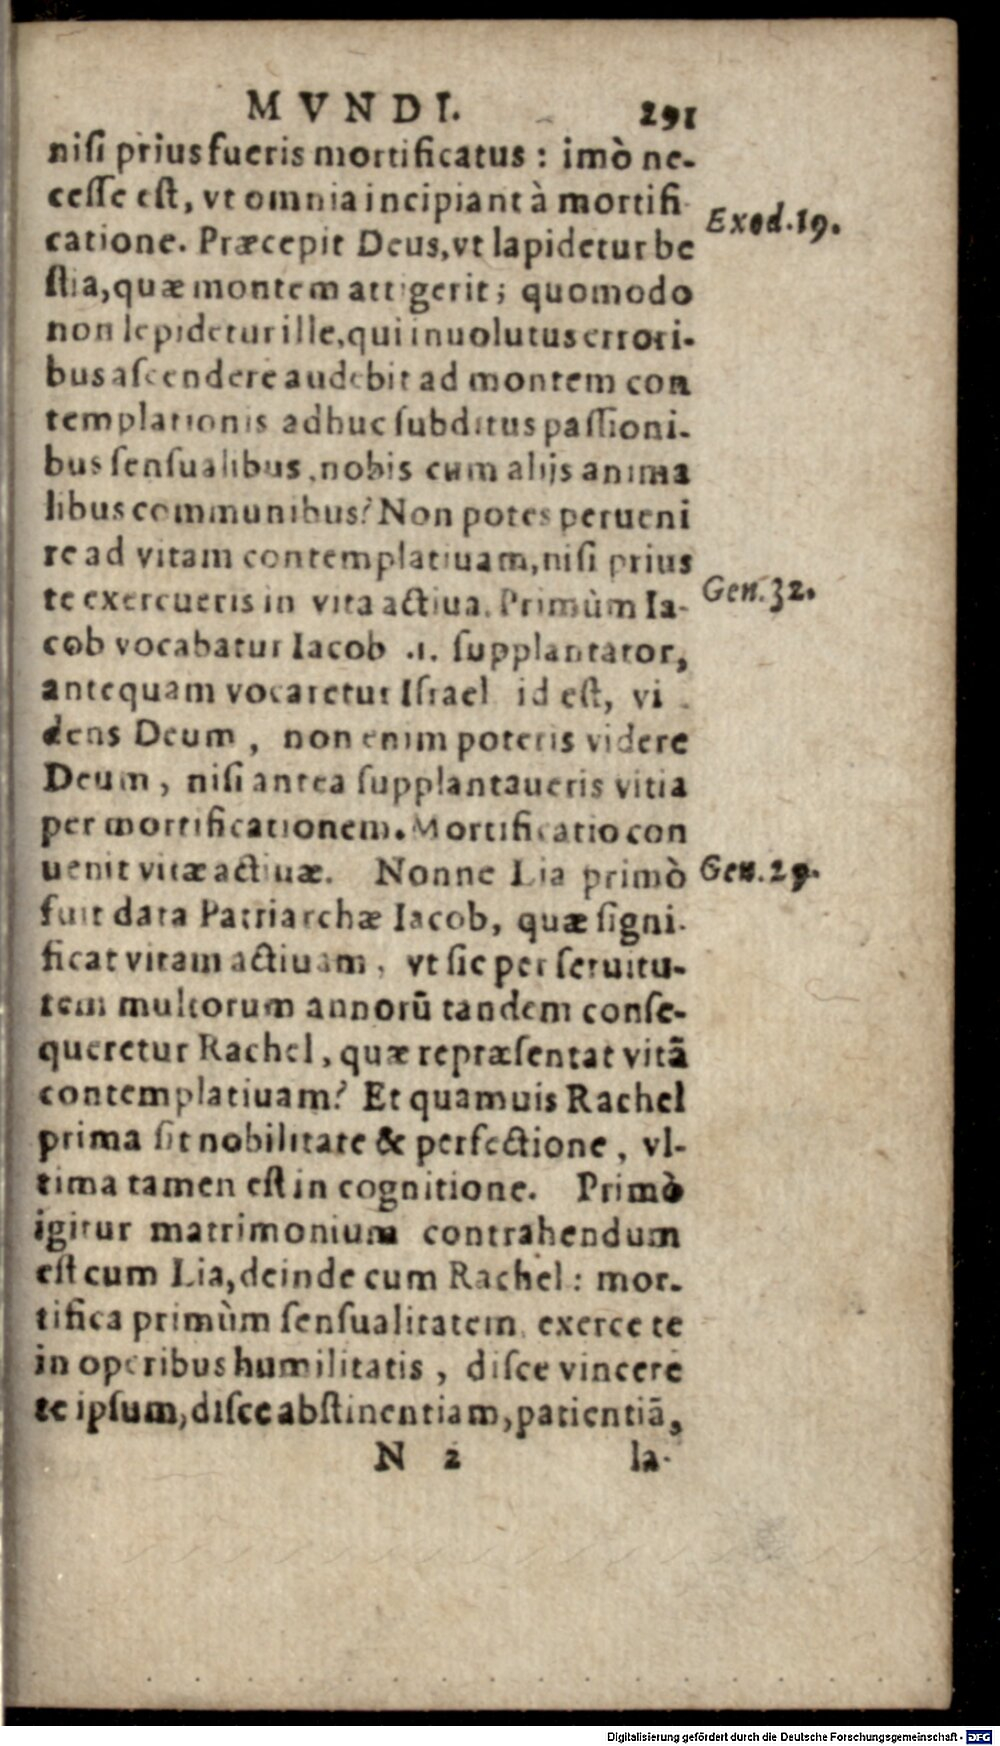 MVNDI. 291
nisi prius fueris mortificatus : imò ne-
cesse est, vt omnia incipiant à mortifi
catione. Præcepit Deus, vt lapidetur be
stia, quæ montem attigerit ; quomodo
non lepidetur ille, qui inuolutus errori-
bus ascendere audebit ad montem con
templationis adhuc subditus passioni-
bus sensualibus, nobis cum alijs anima
libus communibus? Non potes perueni
re ad vitam contemplatiuam, nisi prius
te exercueris in vita actiua. Primùm Ia-
cob vocabatur Iacob .i. supplantator,
antequam vocaretur Israel id est, vi
dens Deum , non enim poteris videre
Deum , nisi antea supplantaueris vitia
per mortificationem. Mortificatio con
uenit vitæ actiuæ. Nonne Lia primò
fuit data Patriarchæ Iacob, quæ signi-
ficat vitam actiuam , vt sic per seruitu-
tem multorum annorū tandem conse-
queretur Rachel , quæ repræsentat vitā
contemplatiuam? Et quamuis Rachel
prima sit nobilitate & perfectione , vl-
tima tamen est in cognitione. Primò
igitur matrimonium contrahendum
est cum Lia, deinde cum Rachel : mor-
tifica primùm sensualitatem, exerce te
in operibus humilitatis , disce vincere
te ipsum, disce abstinentiam, patientiā,
N 2 la-
Exod. 19.
Gen. 32.
Gen. 29.
Digitalisierung gefördert durch die Deutsche Forschungsgemeinschaft - DFG